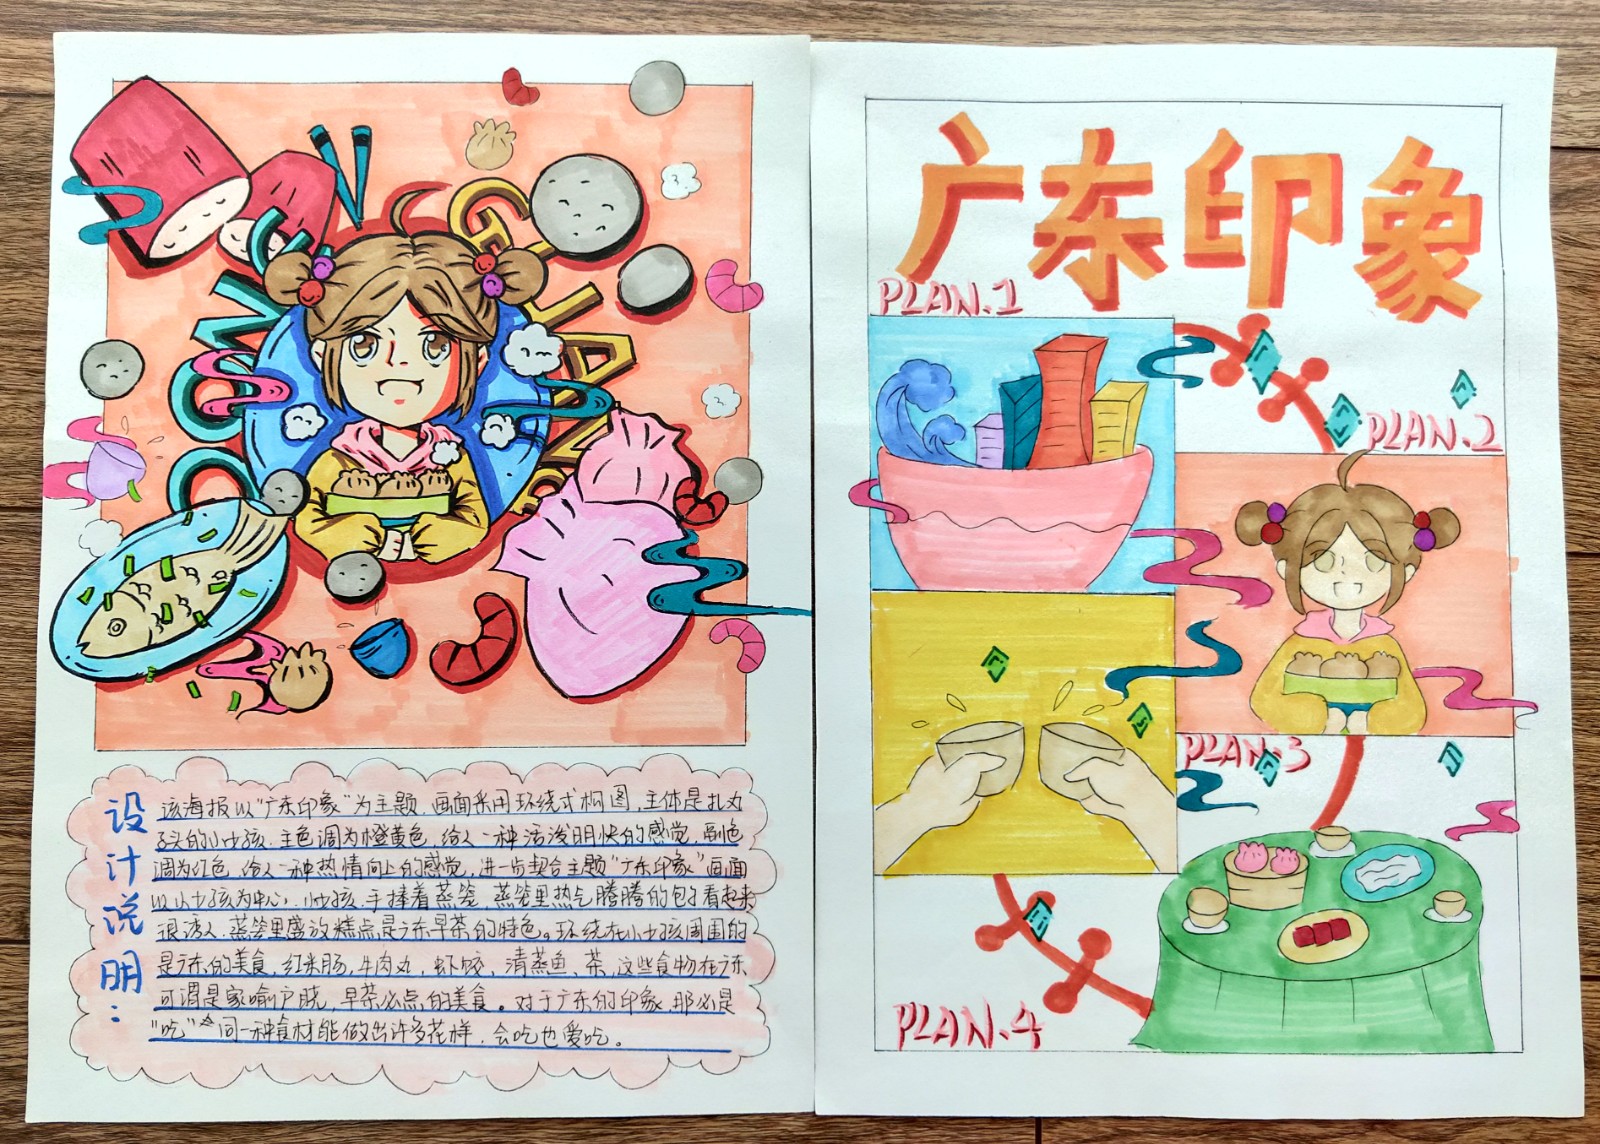 GUANG
DONG
设计说明：
该海报以“广东印象”为主题，画面采用环绕式构图，主体是扎丸
子头的小女孩，主色调为橙黄色，给人一种活泼明快的感觉，副色
调为红色，给人一种热情向上的感觉，进一步契合主题“广东印象”画面
以小女孩为中心，小女孩手捧着蒸笼，蒸笼里热气腾腾的包子看起来
很诱人，蒸笼里盛放糕点是广东早茶的特色。环绕在小女孩周围的
是广东的美食，红米肠，牛肉丸，虾饺，清蒸鱼、茶，这些食物在广东
可谓是家喻户晓，早茶必点的美食。对于广东的印象，那必是
“吃”同一种食材能做出许多花样，会吃也爱吃。
广东印象
PLAN.1
PLAN.2
PLAN.3
PLAN.4